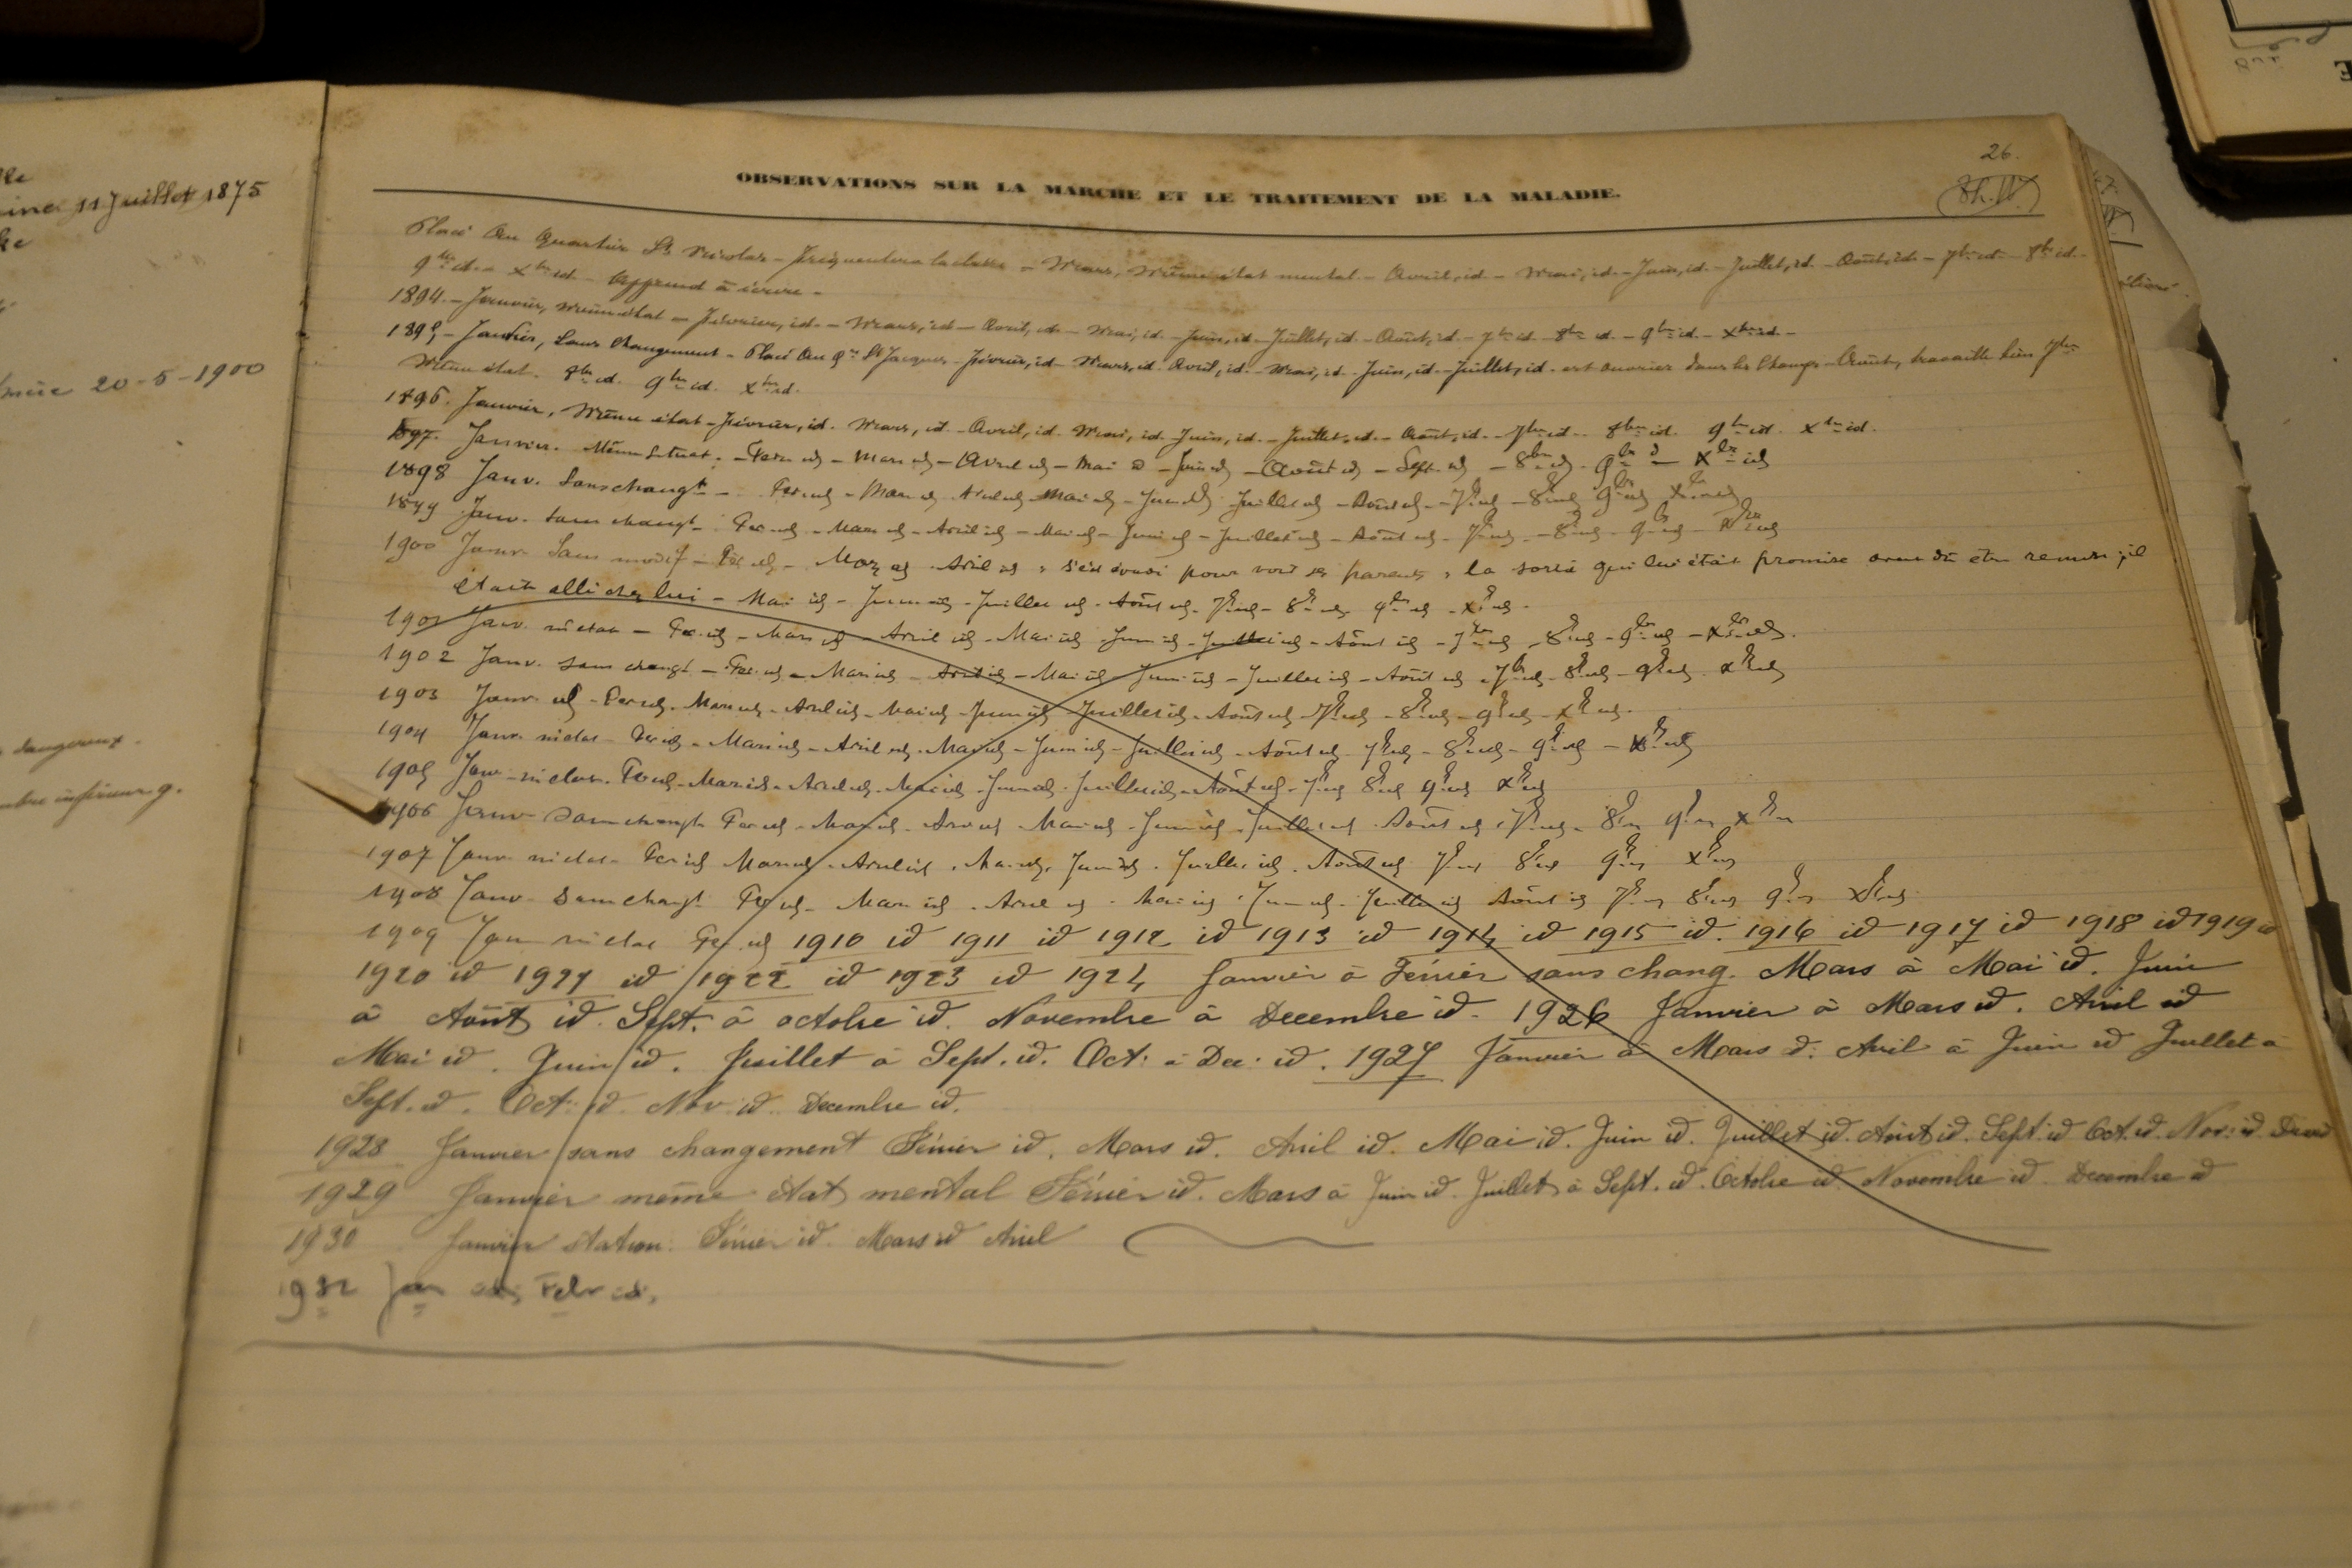 11 Juillet 1875
20-5-1900
dangereux.
inférieur g.
26.
OBSERVATIONS SUR LA MARCHE ET LE TRAITEMENT DE LA MALADIE.
Placé au quartier St Nicolas - fréquentera la classe - Mars, même état mental - Avril, id - Mai, id - Juin, id - Juillet, id - Août, id - 7bre id - 8bre id -
9bre id - Xbre id - Apprend à écrire -
1894. - Janvier, même état - Février, id. - Mars, id - Avril, id - Mai, id - Juin, id - Juillet, id - Août, id - 7bre id - 8bre id - 9bre id - Xbre id -
1895 - Janvier, sans changement - Placé au qer St Jacques - Février, id - Mars, id. Avril, id. - Mai, id - Juin, id - Juillet, id - est ouvrier dans les champs - Août, travaille bien 7bre
Même état. 8bre id. 9bre id. Xbre id.
1896. Janvier, même état - Février, id. Mars, id. - Avril, id. Mai, id. Juin, id. - Juillet, id. - Août, id. - 7bre id. - 8bre id. 9bre id. Xbre id.
1897. Janvier. Même situat. - Fev id - Mars id - Avril id - Mai id - Juin id - Août id - Sept. id - 8bre id - 9bre id - Xbre id
1898 Janv. Sans changt - Fev id - Mars id Avril id Mai id - Juin id Juillet id - Août id - 7bre id - 8bre id 9bre id Xbre id
1899 Janv. Sans changt - Fev id - Mars id - Avril id - Mai id - Juin id - Juillet id - Août id - 7bre id - 8bre id - 9bre id - Xbre id
1900 Janv. Sans modif - Fev id - Mars id Avril id, s'est évadé pour voir ses parents, la sortie qui lui était promise avait dû être remise, il
était allé chez lui - Mai id - Juin id - Juillet id - Août id - 7bre id - 8bre id 9bre id - Xbre id -
1901 Janv. m état - Fev. id - Mars id - Avril id - Mai id - Juin id - Juillet id - Août id - 7bre id - 8bre id - 9bre id - Xbre id.
1902 Janv. Sans changt - Fev. id - Mars id - Avril id - Mai id - Juin id - Juillet id - Août id - 7bre id - 8bre id - 9bre id Xbre id
1903 Janv. id - Fev id - Mars id - Avril id - Mai id - Juin id Juillet id - Août id - 7bre id - 8bre id - 9bre id - Xbre id.
1904 Janv. m état - Fev id - Mars id - Avril id - Mai id - Juin id - Juillet id - Août id - 7bre id - 8bre id - 9bre id - Xbre id
1905 Janv - m état - Fev id - Mars id - Avril id - Mai id - Juin id - Juillet id - Août id - 7bre id 8bre id 9bre id Xbre id
1906 Janv - Sans changt Fev id - Mars id - Avril id - Mai id - Juin id - Juillet id Août id, 7bre id - 8bre id 9bre id Xbre id
1907 Janv - m état - Fev id Mars id - Avril id. Mai id. Juin id. Juillet id. Août id 7bre id 8bre id 9bre id Xbre id
1908 Janv - Sans changt Fev id - Mars id. Avril id. Mai id. Juin id. Juillet id Août id 7bre id 8bre id 9bre id Xbre id
1909 Janv m état Fev id 1910 id 1911 id 1912 id 1913 id 1914 id 1915 id. 1916 id 1917 id 1918 id 1919 id
1920 id 1921 id 1922 id 1923 id 1924 Janvier à Février sans chang. Mars à Mai id. Juin
à Août id. Sept. à octobre id. Novembre à Decembre id. 1926 Janvier à Mars id. Avril id
Mai id. Juin id. Juillet à Sept. id. Oct: à Dec: id. 1927 Janvier à Mars id. Avril à Juin id Juillet à
Sept. id. Oct: id. Nov. id. Decembre id.
1928 Janvier sans changement Février id. Mars id. Avril id. Mai id. Juin id. Juillet id. Août id. Sept. id Oct. id. Nov: id.
1929 Janvier même état mental Février id. Mars à Juin id. Juillet à Sept. id. Octobre id. Novembre id. Decembre id
1930 Janvier station. Février id. Mars id Avril
Jan id, Febr id.